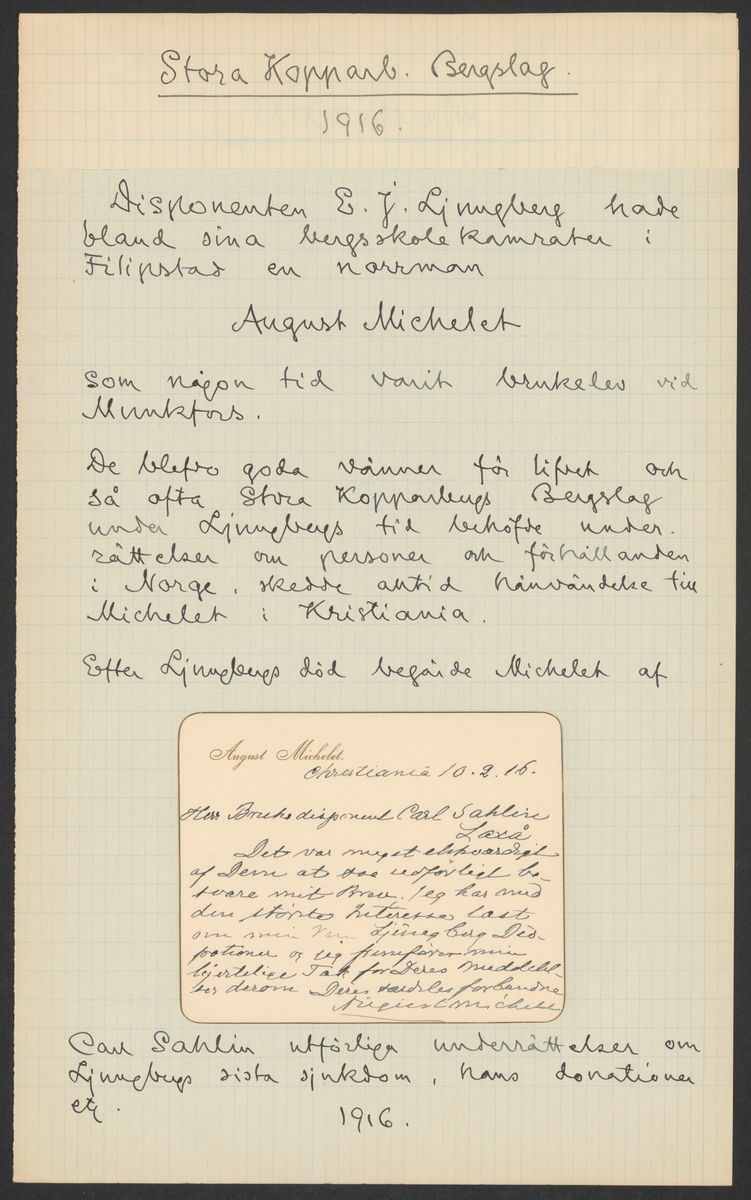 Stora Kopparb. Bergslag.
1916.
Disponenten E. J. Ljungberg hade
bland sina bergsskolekamrater i
Filipstad en norrman
August Michelet
som någon tid varit brukselev vid
Munkfors.
De blefvo goda vänner för lifvet och
så ofta Stora Kopparbergs Bergslag
under Ljungbergs tid behöfde under-
rättelser om personer och förhållanden
i Norge, skedde alltid hänvändelse till
Michelet i Kristiania.
Efter Ljungbergs död begärde Michelet af
August Michelet.
Christiania 10.2.16.
Herr Bruksdisponent Carl Sahlin
Laxå
Det var meget elskværdigt
af Dem at saa udförligt be-
svare mit Brev. Jeg har med
den störste Interesse læst
om min Ven Ljungberg
og jeg fremförer min
hjertelige Tak for Deres Meddelel-
ser derom Deres særdeles forbundne
August Michelet
Carl Sahlin utförliga underrättelser om
Ljungbergs sista sjukdom, hans donationer
etc.
1916.